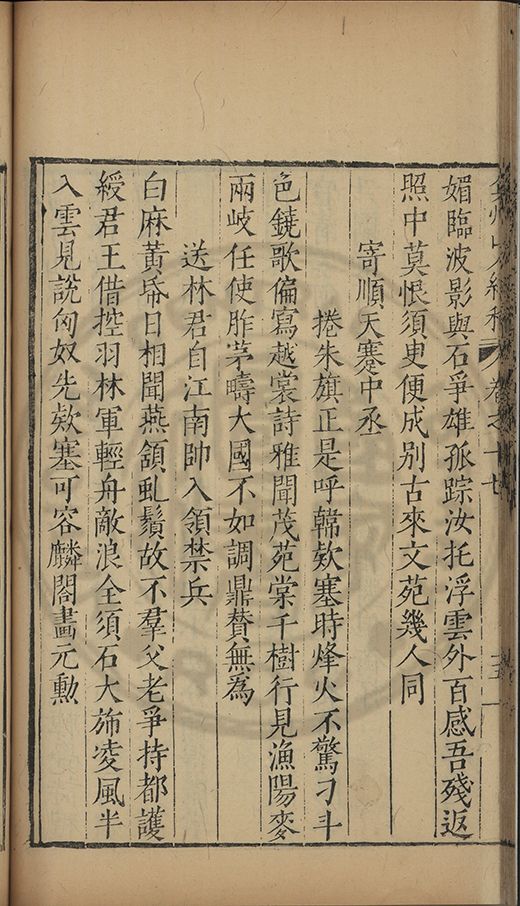 媚臨波影與石爭雄孤踪汝托浮雲外百感吾殘返
照中莫恨須臾便成别古來文苑幾人同
寄順天蹇中丞
捲朱旗正是呼韓欵塞時烽火不驚刁斗
色鐃歌偏寫越裳詩雅聞茂苑棠千樹行見漁陽麥
兩岐任使胙茅疇大國不如調鼎贊無為
送林君自江南帥入領禁兵
白麻黃帋日相聞燕頷虬鬚故不羣父老爭持都護
綬君王借控羽林軍輕舟敵浪全須石大斾凌風半
入雲見說匈奴先欵塞可容麟閣畫元勳